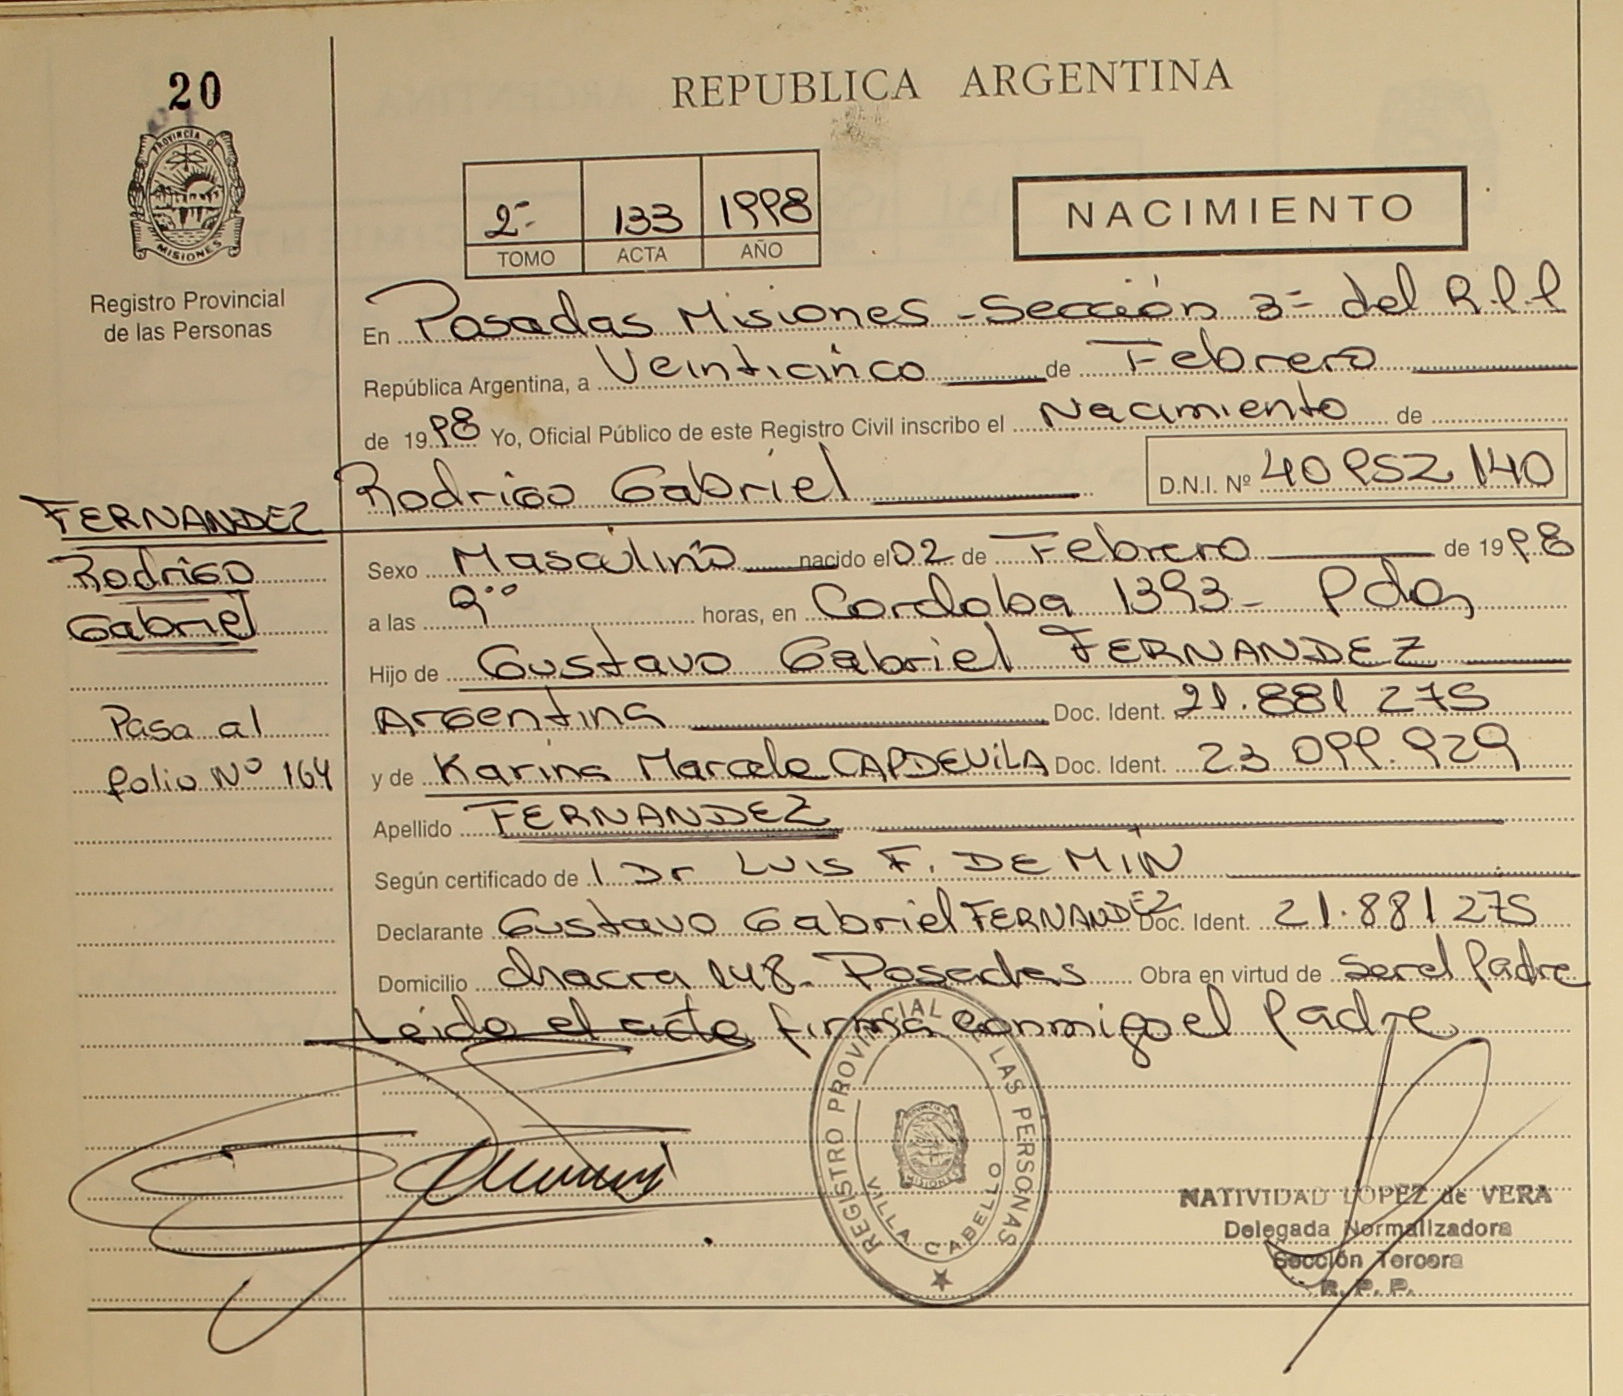 20
PROVINCIA DE
MISIONES
Registro Provincial
de las Personas
REPUBLICA ARGENTINA
2- 133 1998
TOMO ACTA AÑO
NACIMIENTO
En Posadas Misiones - Sección 3= del R.P.P
República Argentina, a Veinticinco de Febrero
de 1998 Yo, Oficial Público de este Registro Civil inscribo el Nacimiento de
Rodrigo Gabriel D.N.I. Nº 40 952 140
FERNANDEZ
Rodrigo
Gabriel
Pasa al
folio Nº 164
Sexo Masculino nacido el 02 de Febrero de 1998
a las 9ºº horas, en Cordoba 1393 - Pdas
Hijo de Gustavo Gabriel FERNANDEZ
Argentina Doc. Ident. 21.881 275
y de Karina Marcela CAPDEVILA Doc. Ident. 23 099.929
Apellido FERNANDEZ
Según certificado de l Dr LUIS F. DE MIN
Declarante Gustavo Gabriel FERNANDEZ Doc. Ident. 21.881 275
Domicilio chacra 148- Posadas Obra en virtud de ser el Padre
Leida el acta firma conmigo el Padre
REGISTRO PROVINCIAL DE LAS PERSONAS
PROVINCIA DE
MISIONES
VILLA CABELLO
NATIVIDAD LOPEZ de VERA
Delegada Normalizadora
Sección Tercera
R. P. P.